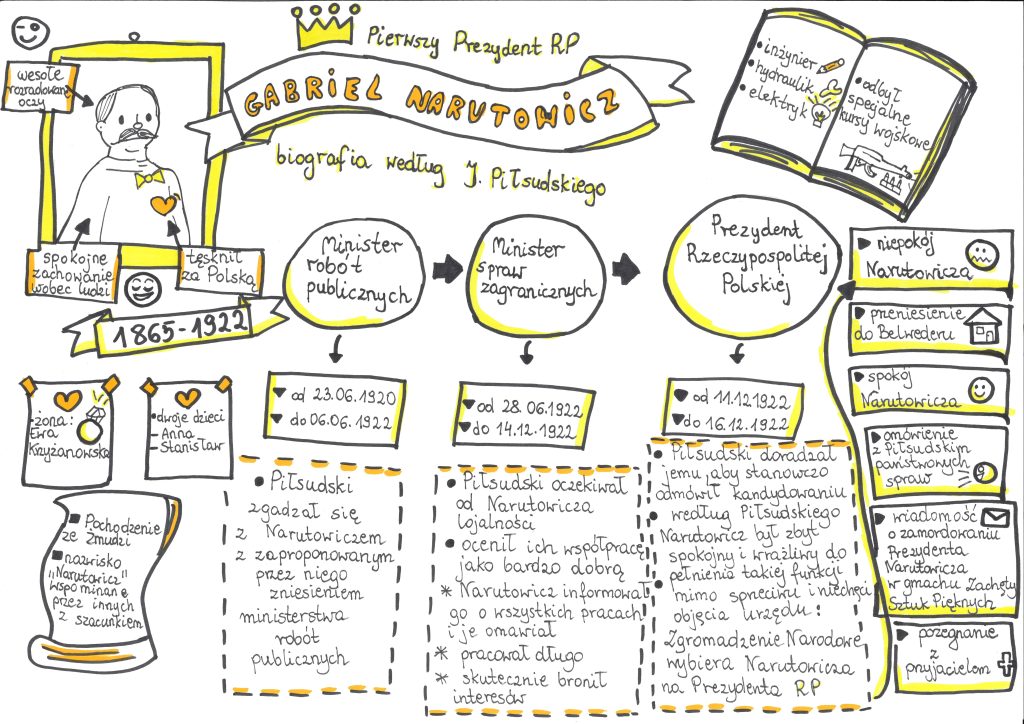 Pierwszy Prezydent RP
GABRIEL NARUTOWICZ
biografia według J. Piłsudskiego
wesołe
rozradowane
oczy
spokojne
zachowanie
wobec ludzi
tęsknił
za Polską
1865-1922
• inżynier
• hydraulik
• elektryk
• odbył
specjalne
kursy wojskowe
-żona:
Ewa
Krzyżanowska
•dwoje dzieci
- Anna
- Stanisław
Pochodzenie
ze Żmudzi
nazwisko
"Narutowicz"
wspominane
przez innych
z szacunkiem
Minister
robót
publicznych
od 23.06.1920
do 06.06.1922
• Piłsudski
zgadzał się
z Narutowiczem
z zaproponowanym
przez niego
zniesieniem
ministerstwa
robót
publicznych
Minister
spraw
zagranicznych
od 28.06.1922
do 14.12.1922
• Piłsudski oczekiwał
od Narutowicza
lojalności
• ocenił ich współpracę
jako bardzo dobrą
* Narutowicz informował
go o wszystkich pracach
i je omawiał
* pracował długo
* skutecznie bronił
interesów
Prezydent
Rzeczypospolitej
Polskiej
od 11.12.1922
do 16.12.1922
• Piłsudski doradzał
jemu, aby stanowczo
odmówił kandydowaniu
• według Piłsudskiego
Narutowicz był zbyt
spokojny i wrażliwy do
pełnienia takiej funkcji
• mimo sprzeciwu i niechęci
objęcia urzędu:
Zgromadzenie Narodowe
wybiera Narutowicza
na Prezydenta RP
niepokój
Narutowicza
przeniesienie
do Belwederu
spokój
Narutowicza
omówienie
z Piłsudskim
państwowych
spraw
wiadomość
o zamordowaniu
Prezydenta
Narutowicza
w gmachu Zachęty
Sztuk Pięknych
pożegnanie
z
przyjacielem